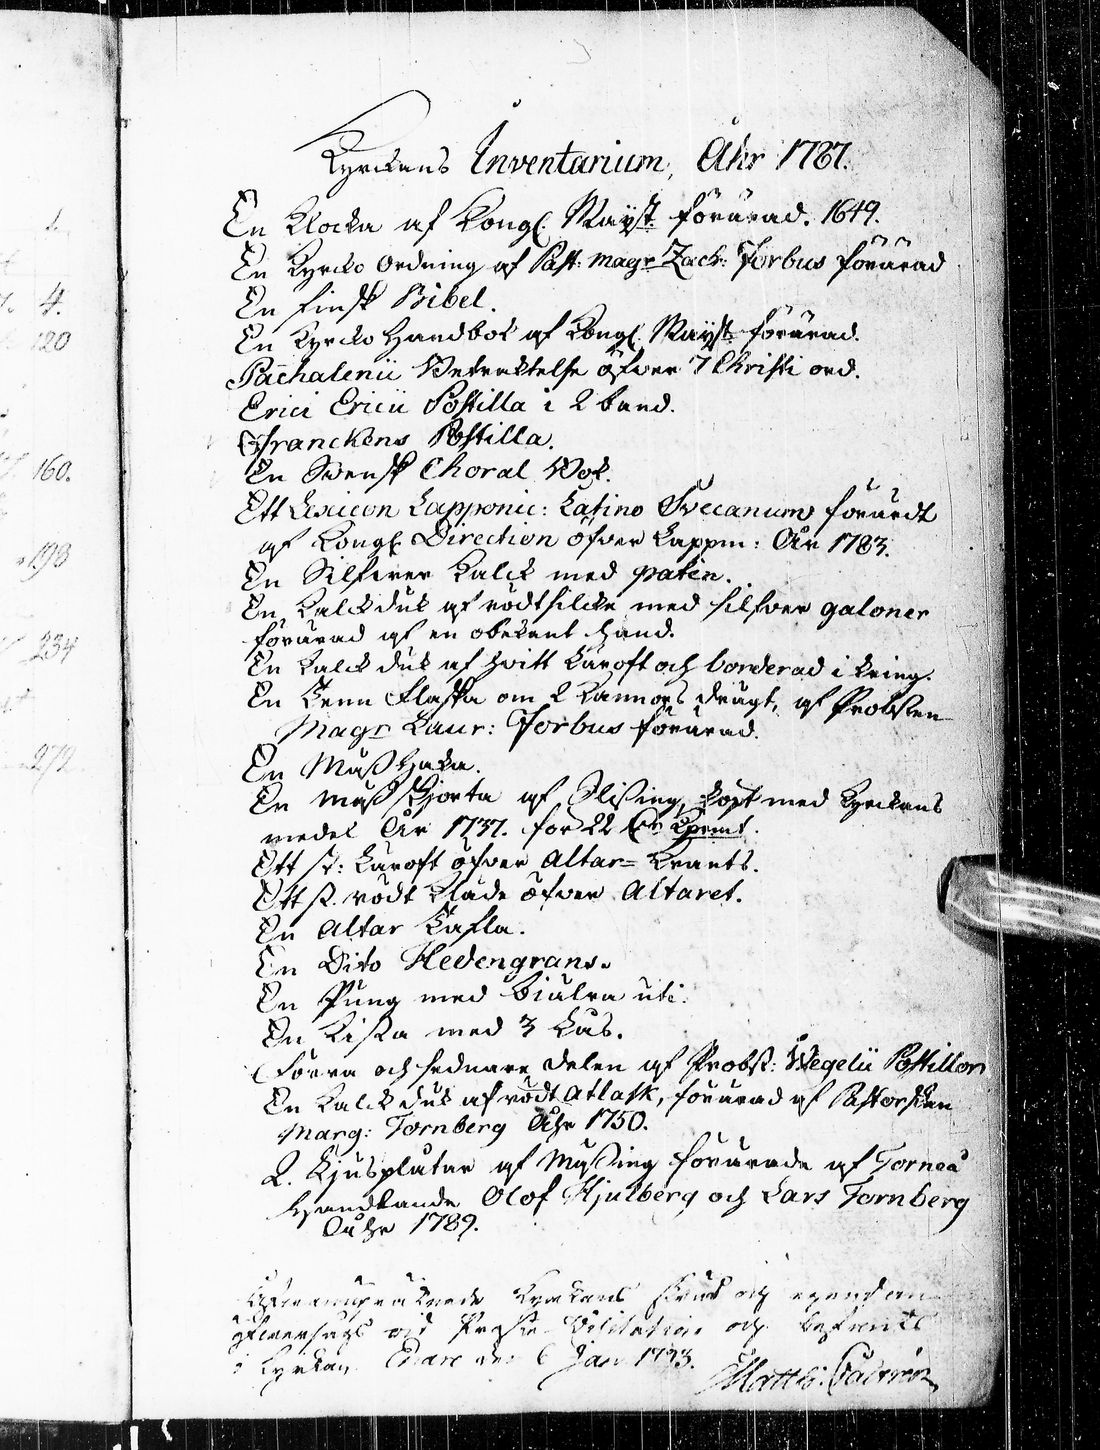 Kyrckans Inventarium, Åhr 1787.
En Klocka af Kongl. Mayst. förärad. 1649.
En Kyrcko Ordning af Past. Magr Zach: Forbus förärad
En finsk Bibel.
En Kyrcko Handbok af Kongl. Mayst. förärad.
Pachalenii Betracktelse öfver 7 Christi ord.
Erici Ericii Postilla i 2 band.
Franckens Postilla.
En Svensk Choral Bok.
Ett Lexicon Lapponic: Latino Svecanum förärdt
af Kongl. Direction öfver Lappm: År 1783.
En Silfwer Kalck med paten.
En Kalckduk af rödt silcke med silfver galoner
förärad af en obekant hand.
En Kalck duk af hvitt Läroft och borderad i kring.
En Tenn Flaska om 2 Kannors drägt, af Probsten
Magr Laur: Forbus förärad.
En Mäss Haka.
En Mäss Skjorta af Slesing, köpt med Kyrckans
medel År 1737. for 22
Ett st: Läroft öfver Altar= Krants.
Ett st. rödt Kläde öfver Altaret.
En Altar Tafla.
En Dito Hedengrans.
En Pung med biälra uti.
En Kista med 3 Lås.
Förra och sednare delen af Probst: Wegelii Postillor
En Kalckduk af rödt atlask, förärad af Pastorskan
Marg: Tornberg Åhr 1750.
2. Ljusplåtar af Mässing förärade af Torneå
Handlande Olof Hjulberg och Lars Tornberg
Åhr 1789.
Kyrkans skrud och egendom
öfversågs vid Visitation och befants
i Kyrkan, Enare den 6 Jan. 1793.